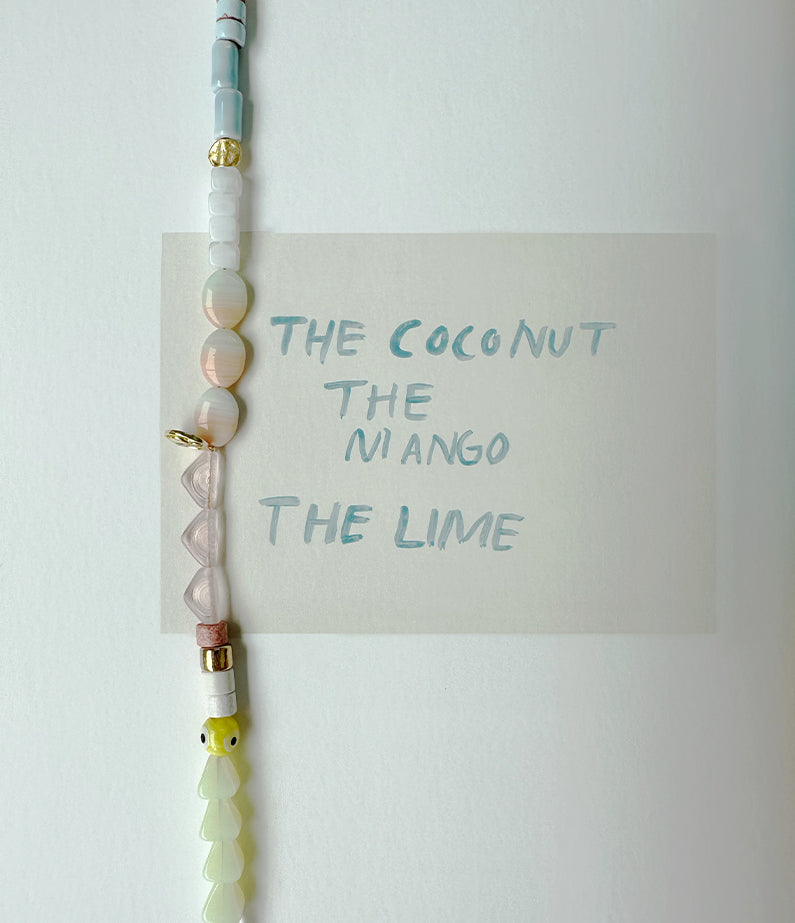 THE COCONUT
THE
MANGO
THE LIME